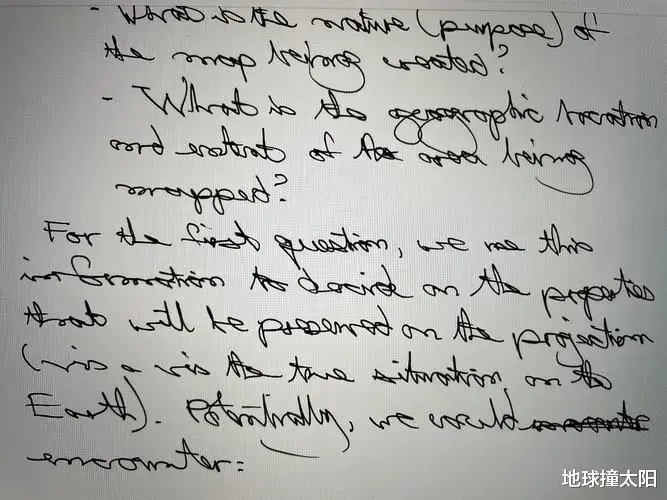 - What is the nature (purpose) of
the map being created?
- What is the geographic location
and extent of the area being
mapped?
For the first question, we use this
information to decide on the properties
that will be preserved on the projection
(vis a vis the true situation on the
Earth). Potentially, we could
encounter:
地球撞太阳